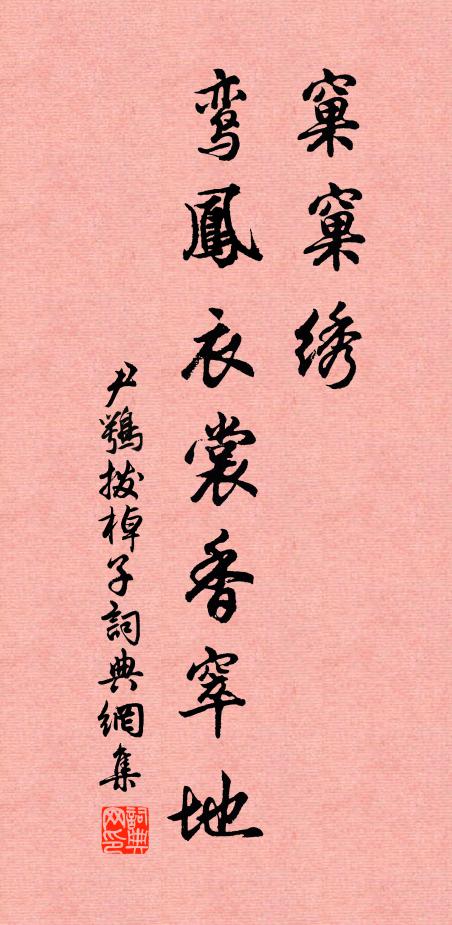 窠窠绣
鸾鳳衣裳香窣地
尹鶚拨棹子詞典網集
詞典网印